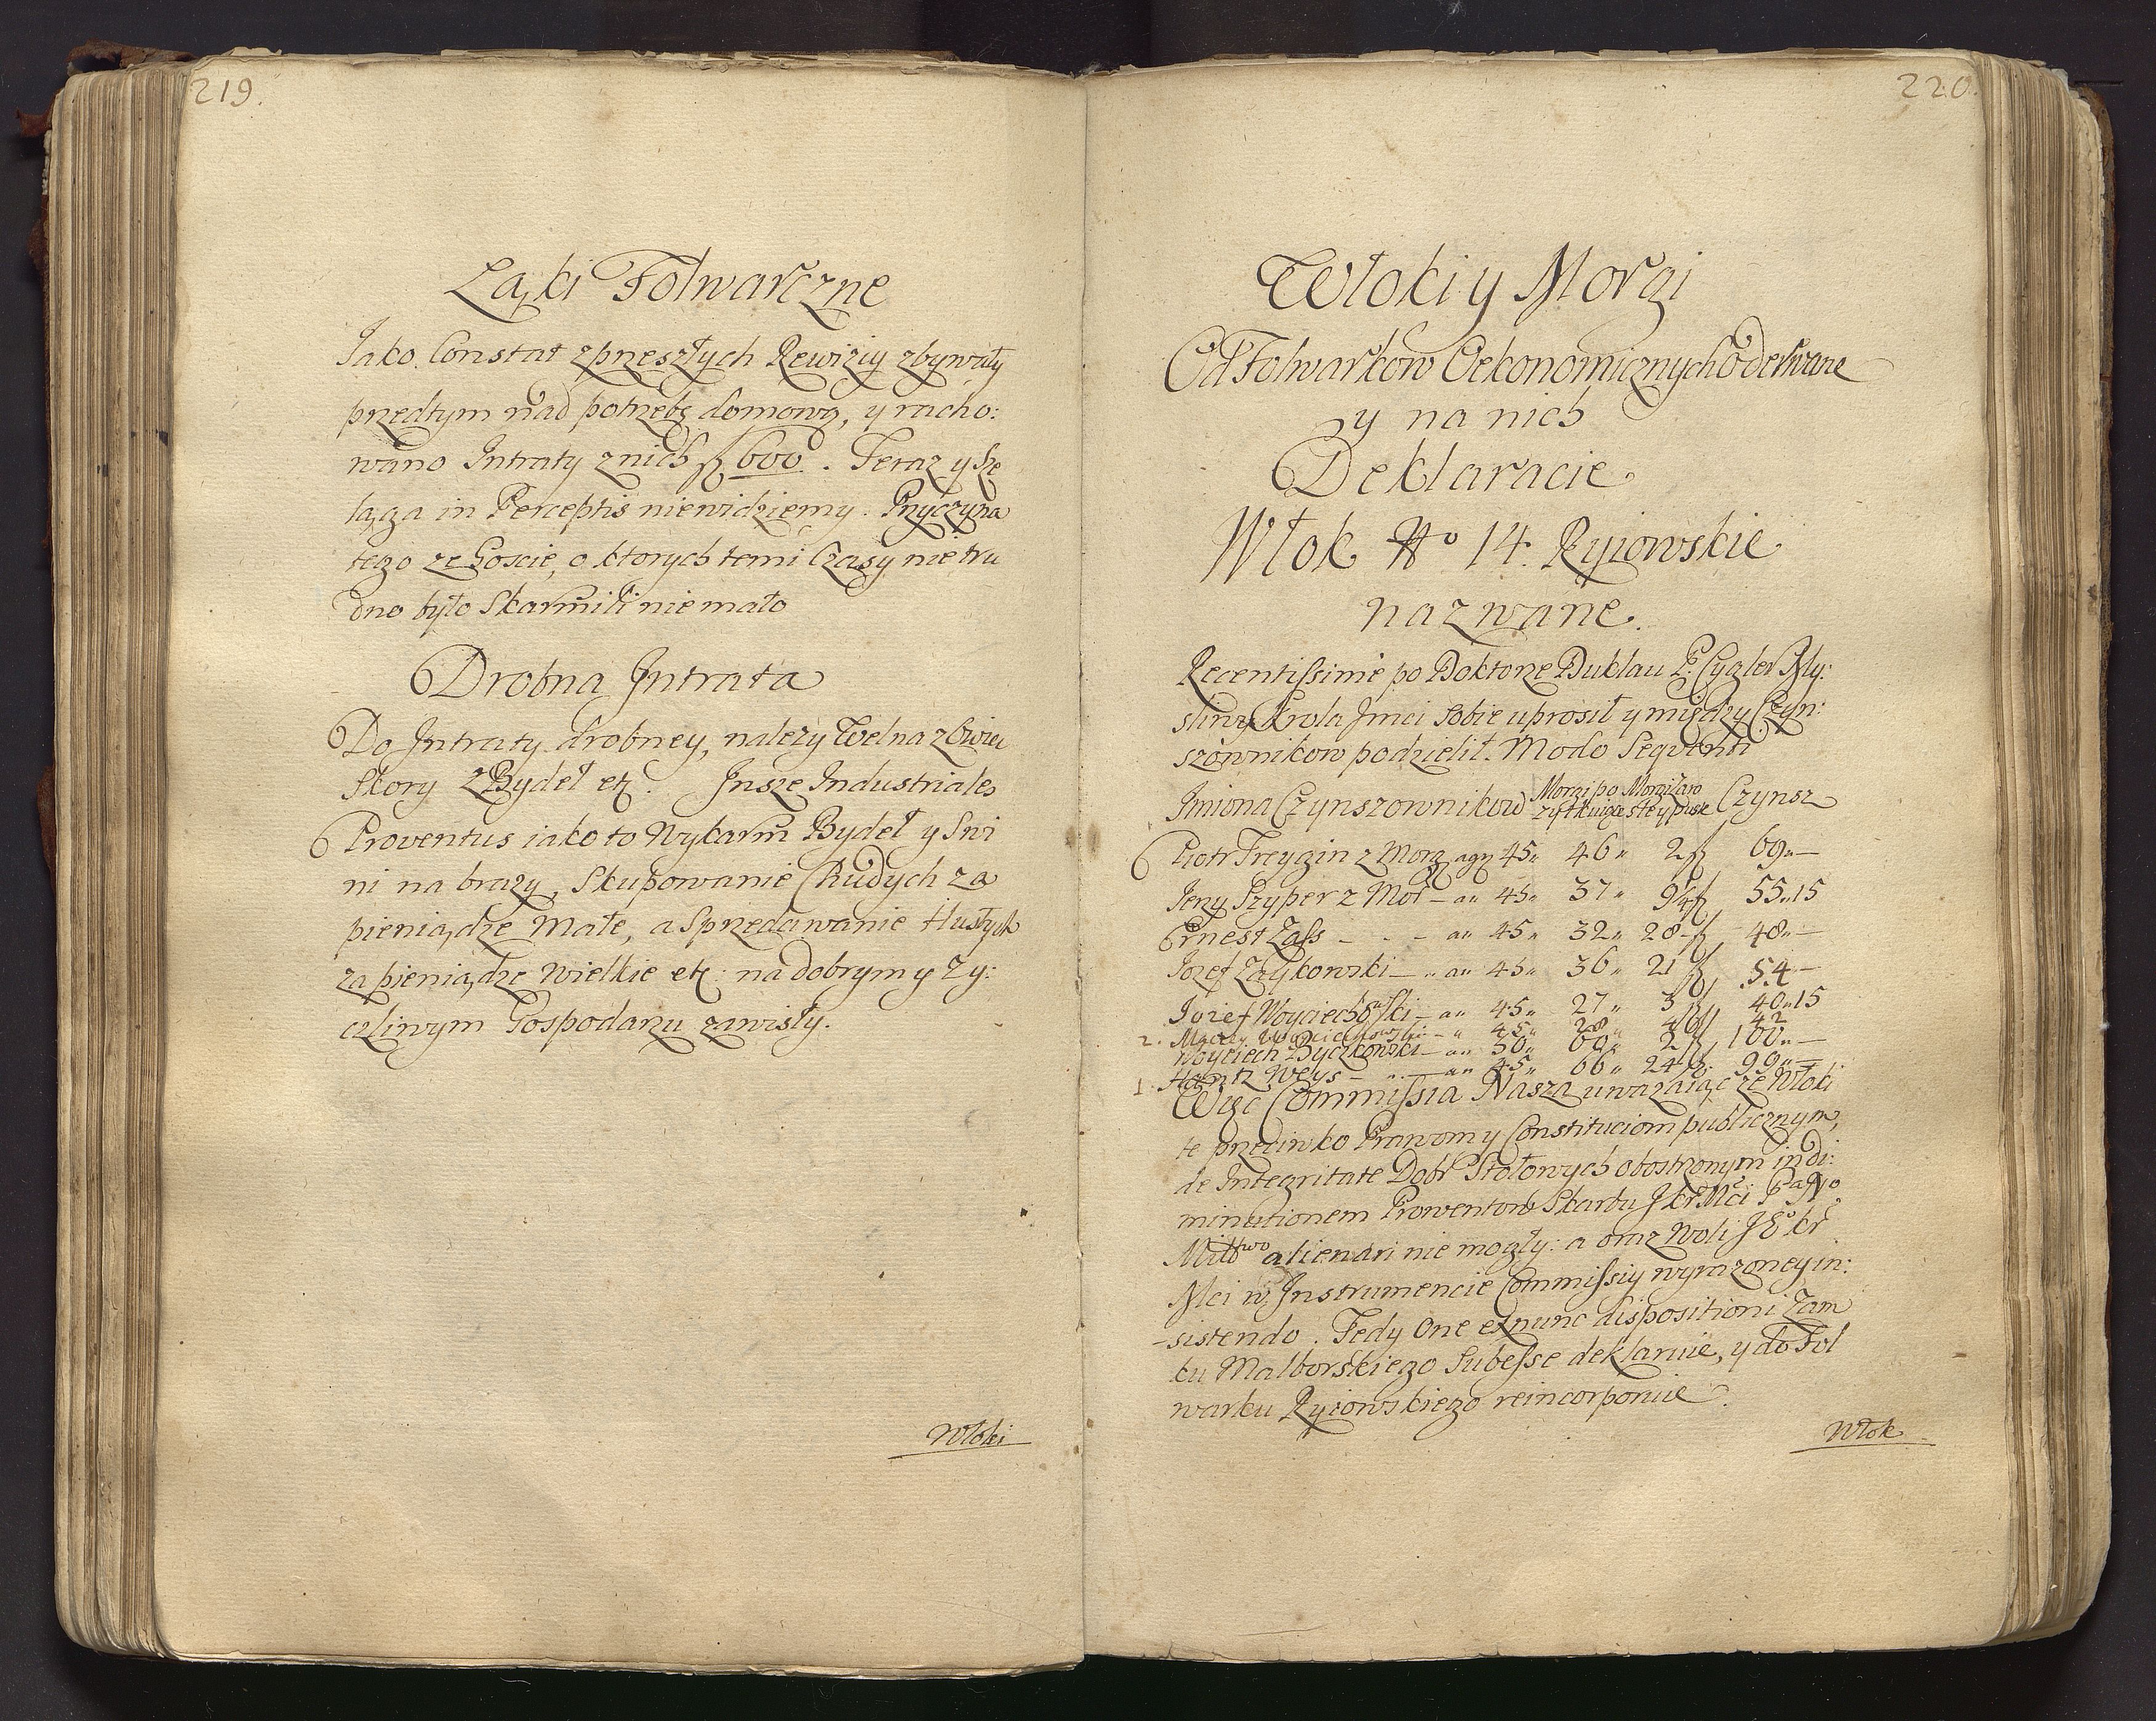 219.
Łąki Folwarczne
Jako Constat zprzeszłych Rewiziy zbywały
przedtym nad potrzebę domową, y racho:
wano Intraty znich fl 600. Teraz y Sze
ląga in Perceptis niewidziemy. Przyczyna
tego ze Goscie, o ktorych temi Czasy nie tru
dno było Skarmili nie mało
Drobna Intrata
Do Intraty drobney, nalezy Wełna z Owiec
Skory z Bydeł etc. Insze Industriales
Proventus iako to Wykarm Bydeł y Swi
ni na brazy, Skupowanie Chudych za
pieniądze Małe, a Sprzedawanie tłustych
za pieniądze Wielkie etc: na dobrym y zy:
czliwym Gospodarzu zawisły.
Włoki
220.
Włoki y Morgi
Od Folwarkow Oekonomicznych oderwane
y na nich
Deklaracie
Włok No 14. Ryiowskie
nazwane.
Recentissime po Doktorze Duklau P. Cygler My:
sliwy Krola Jmci Sobie uprosił y między Czyn:
szownikow podzielił. Modo Sequenti
Imiona Czynszownikow Morgi po Morgi Zaro Czynsz
zytkuiące słe y puste
Piotr Freygin z Morg agr 45" 46" 2 fl 69"—
Jerzy Szyper z Mor — a" 45" 37" 9 fl 55"15
Ernest Zass - - - a" 45" 32" 28 fl 48"—
Jozef Zaykowski — " a" 45" 36" 21 fl 54 —
Jozef Woyciechowski — a" 45" 27" 3 fl 40"15
2. Maciey Woyciechowski — " 45" 28" 4 fl 42
Woyciech Byczkowski — a" 30" 60" 2 fl 100"—
1. Hantz Weys — " — a" 45" 66" 24 fl 99"—
Więc Commissia Nasza uwazaiąc ze Włoki
te przeciwko Prawom y Constituciom publicznym,
de Integritate Dobr Stołowych obostrzonym in di:
minutionem Prowentow Skarbu J Kr Mci
alienari nie mogły: a oraz Woli J Kr
Mci w Instrumencie Commissiy wyrazoney in:
sistendo. Tedy One ex nunc dispositioni Zam
ku Malborskiego Subesse deklaruie, y do Fol
warku Ryiowskiego reincorporuie.
Włok